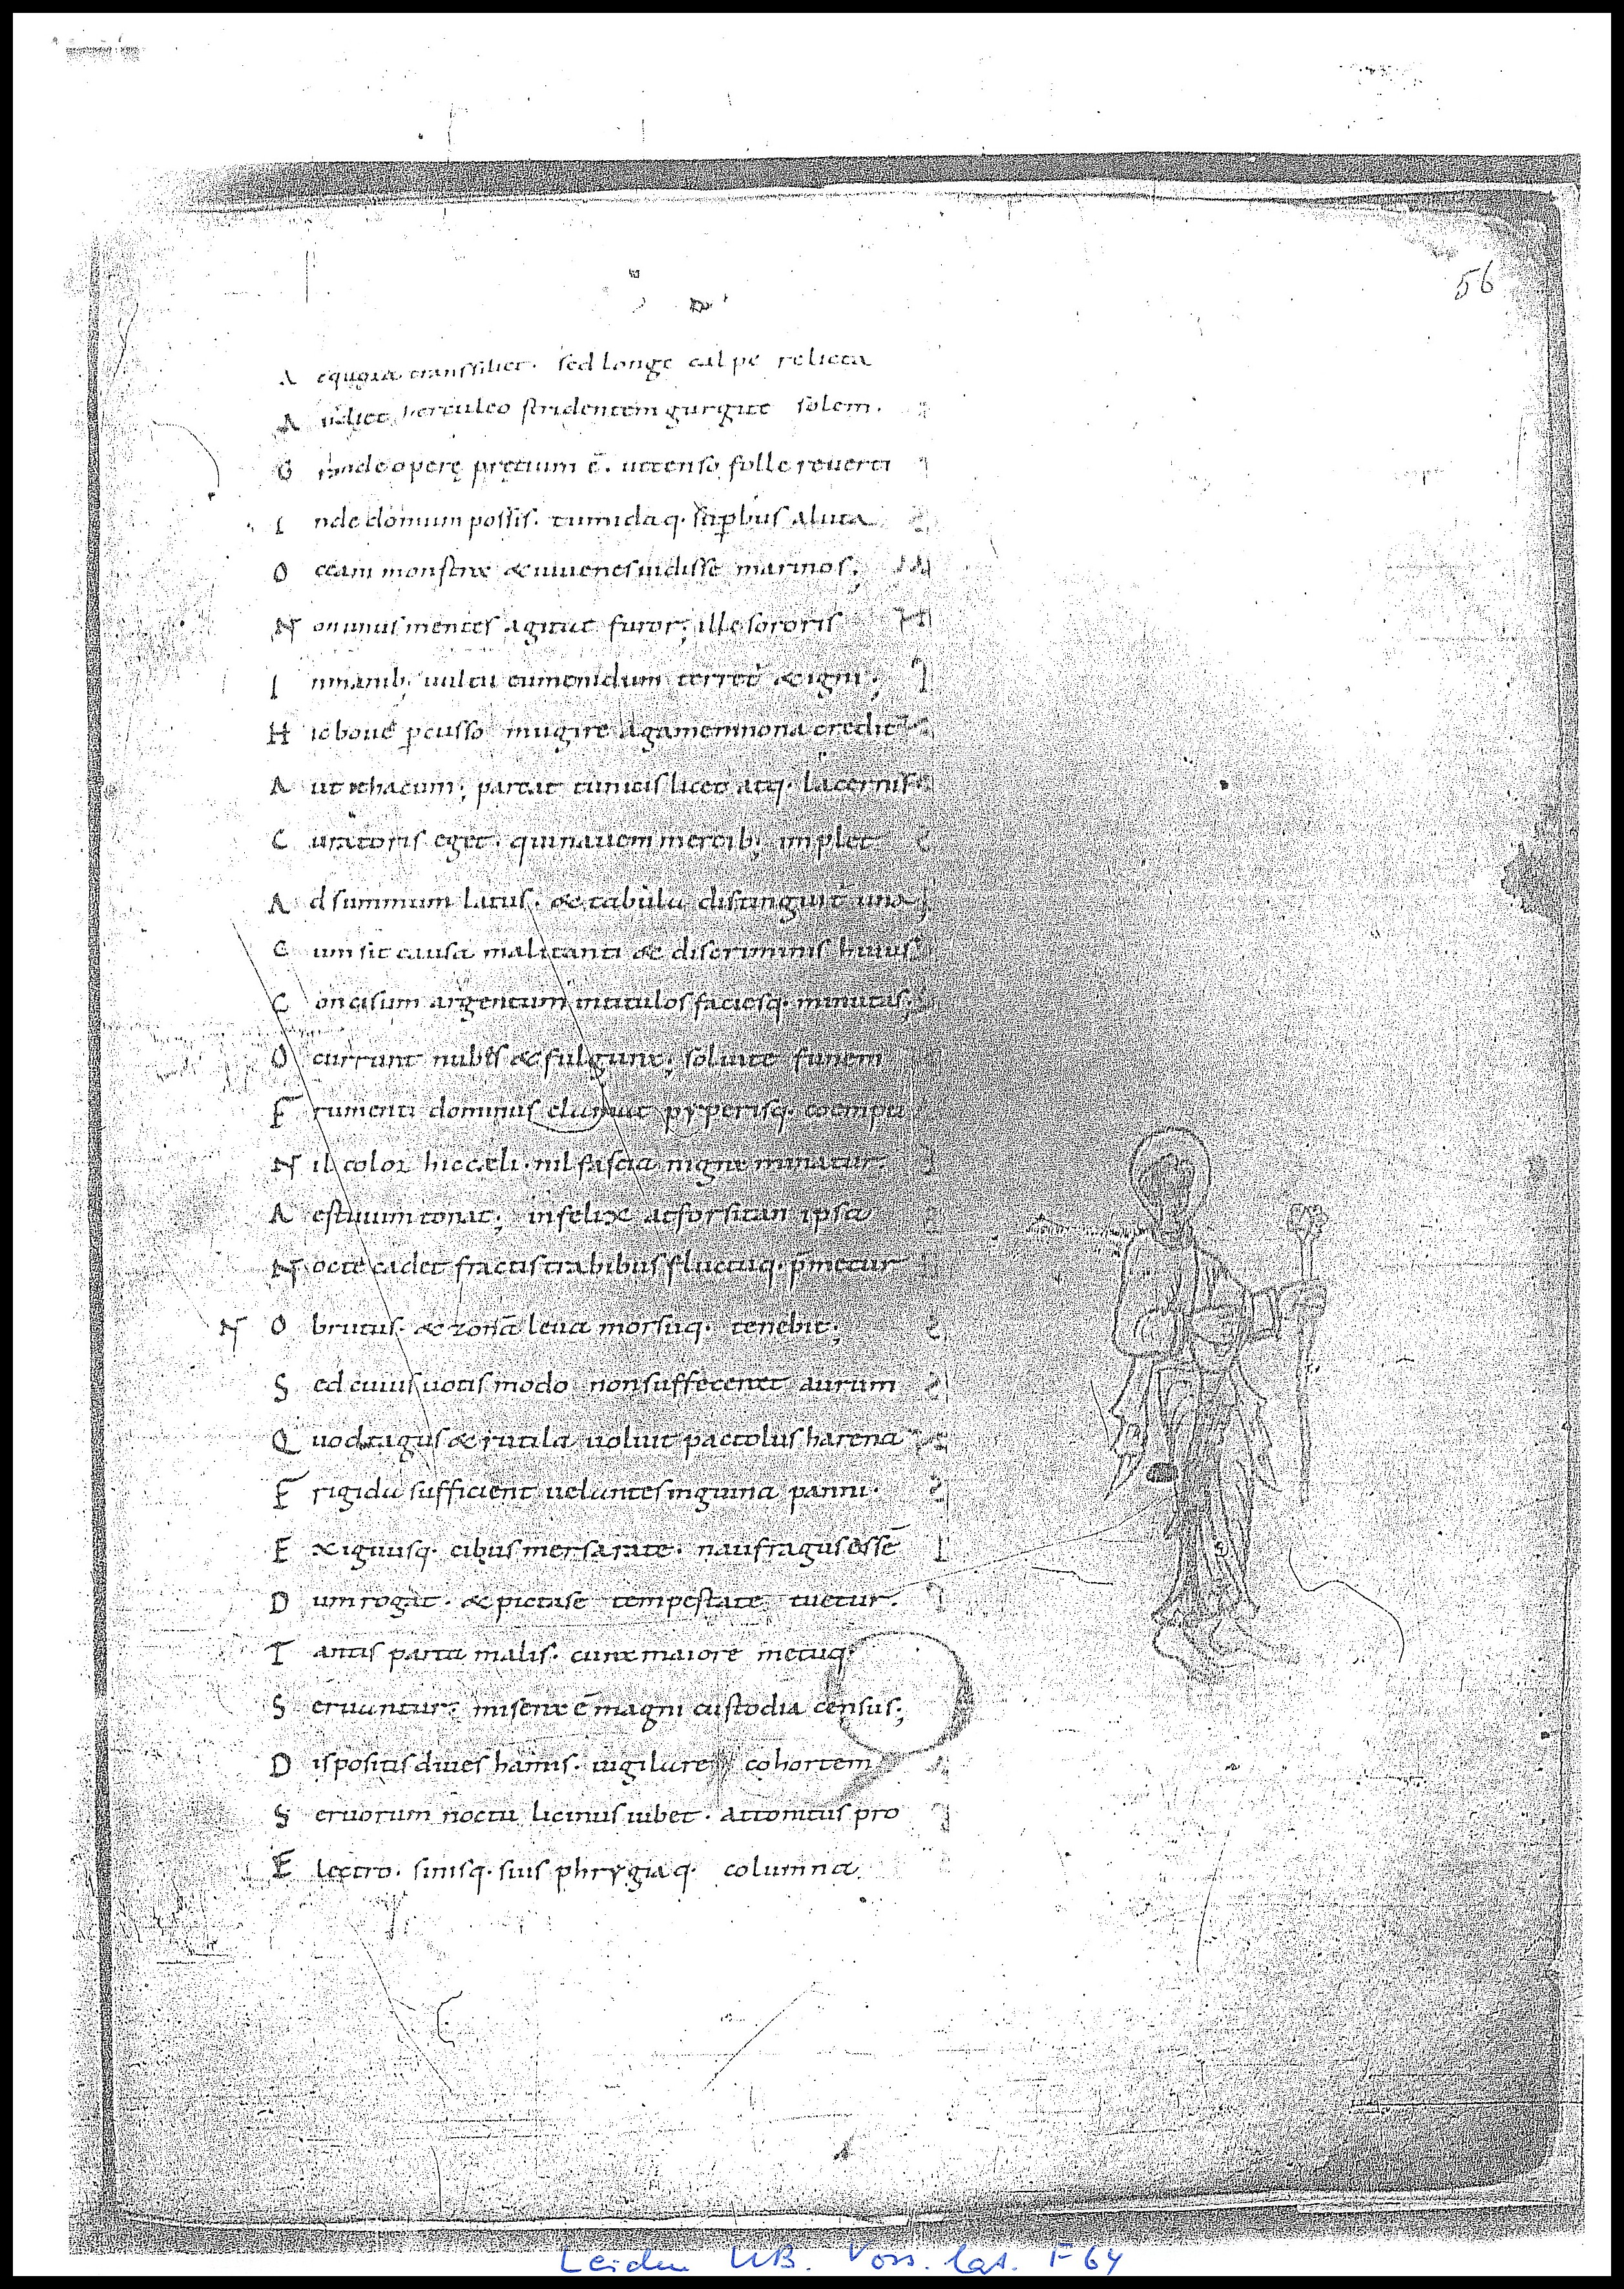 56
A equora transsiliet. sed longe calpe relicta
A udiet herculeo stridentem gurgite solem.
G rande operę pretium ē. ut tenso folle reverti
I nde domum possis. tumidaq. superbus aluta
O ceani monstra & iuuenes uidisse marinos;
N on unus mentes agitat furor; ille sororis
I nmanib; uultu eumenidum terret & igni;
H ic boue pcusso mugire agamemnona credit
A ut ithacum; parcat tunicis licet atq. lacernis
C uratoris eget. qui nauem mercib; implet
A d summum latus. & tabula distinguit unda
C um sit causa mali tanti & discriminis huius
C oncisum argentum in titulos faciesq. minutas;
O ccurrunt nubes & fulgura; soluite funem
F rumenti dominus clamat pyperisq. coempti
N il color hic cæli. nil fascia nigra minatur.
A estiuum tonat; infelix ac forsitan ipsa
N octe cadet fractis trabibus fluctuq. pmetur
N O brutus. & zonā leua morsuq. tenebit;
S ed cuius uotis modo non suffecerat aurum
Q uod tagus & rutila uoluit pactolus harena
F rigida sufficient uelantes inguina panni.
E xiguusq. cibus mersa rate. naufragus assē
D um rogat. & picta se tempestate tuetur.
T antis parta malis. cura maiore metuq.
S eruantur; misera ē magni custodia census;
D ispositis diues hamis. uigilare cohortem
S eruorum noctu licinus iubet. attonitus pro
E lectro. signisq. suis phrygiaq. columna
Leiden UB. Voss. lat. F 64